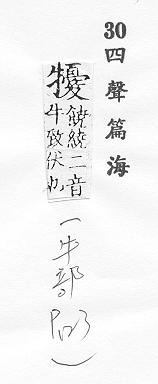 30 四聲篇海
㹛 饒繞二音
牛致伏也
(牛部 )